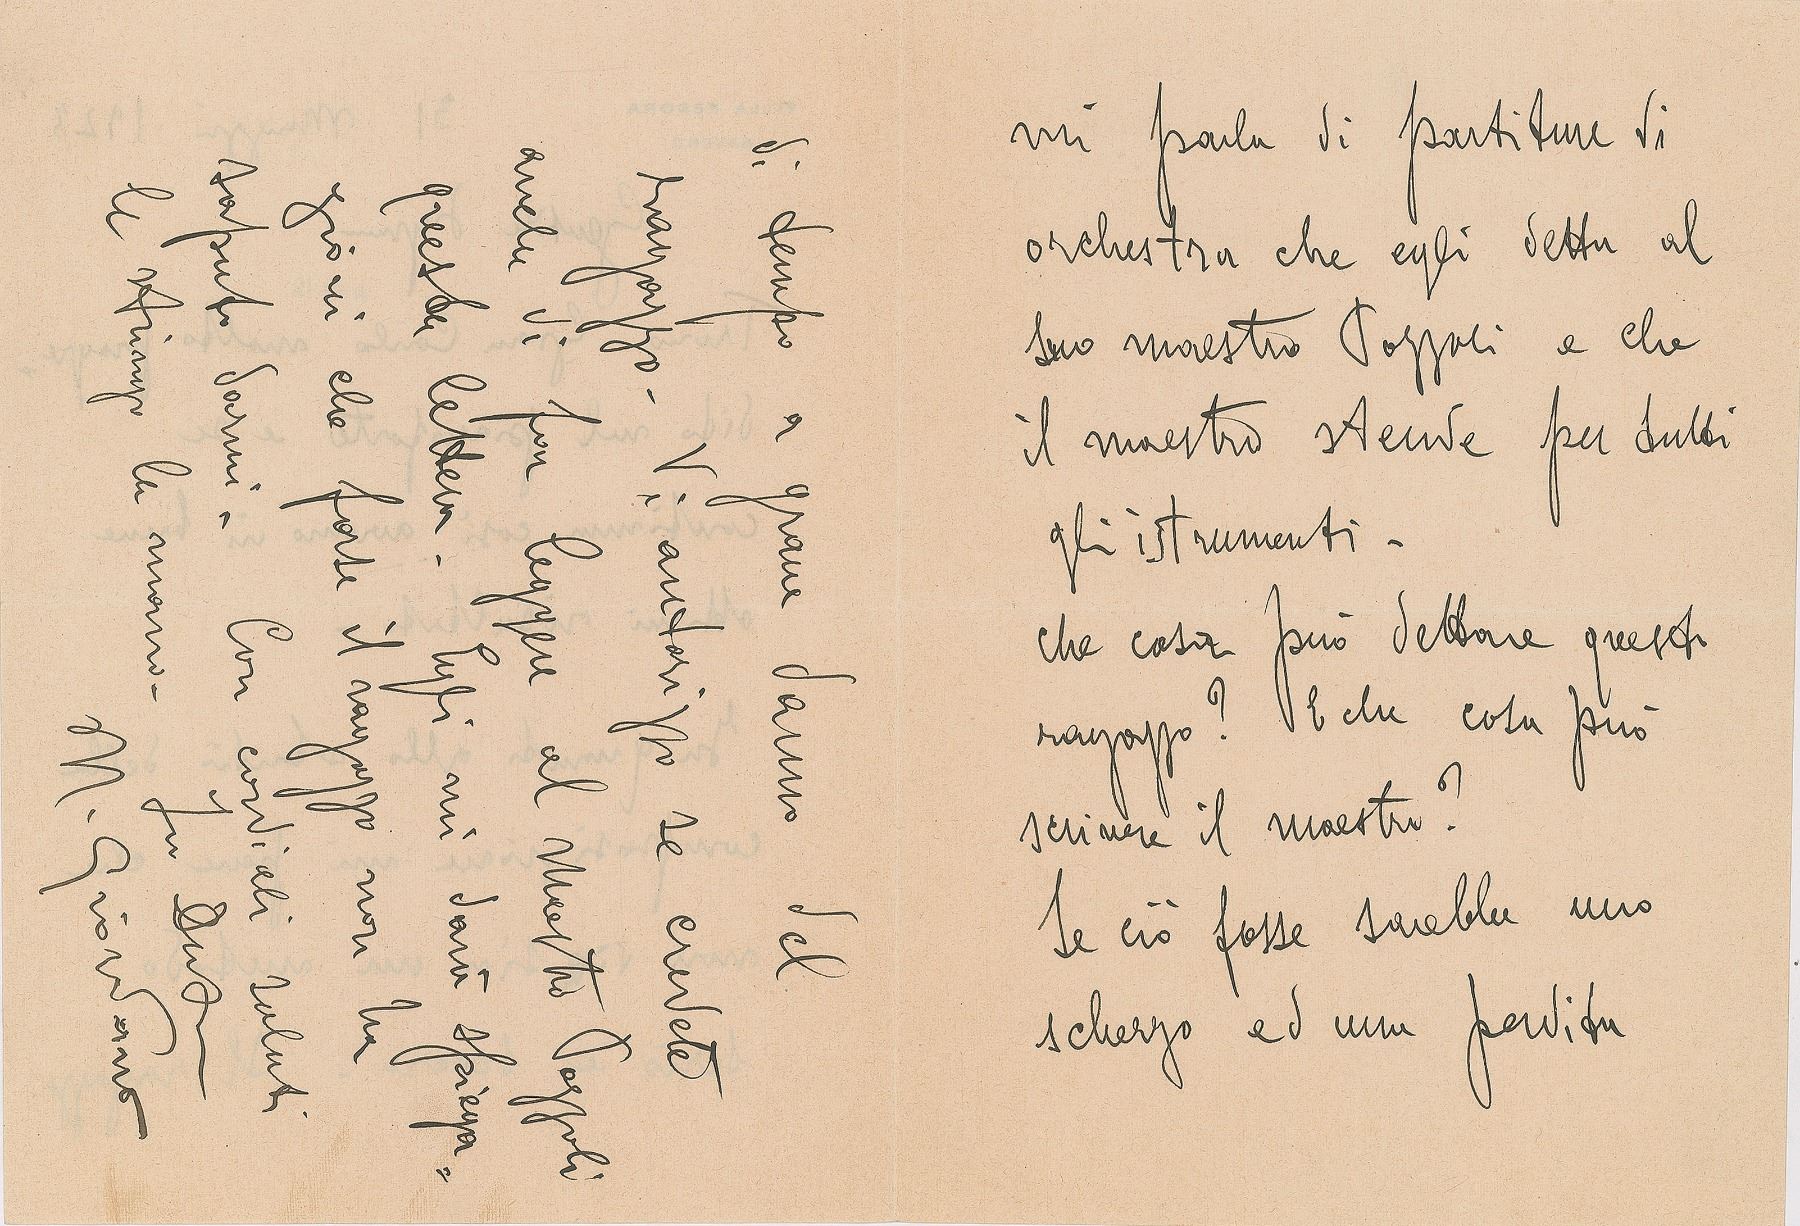 mi parla di partiture di
orchestra che egli detta al
suo maestro Pozzoli e che
il maestro stende per tutti
gli istrumenti -
che cosa può dettare questo
ragazzo? E che cosa può
scrivere il maestro?
Se ciò fosse sarebbe uno
scherzo ed una perdita
di tempo a grave danno del
ragazzo - Vi autorizzo se credete
anche di far leggere al Maestro Pozzoli
questa lettera. Egli mi darà spiega=
gioni che forse il ragazzo non ha
saputo darmi. Con cordiali saluti
le stringo la mano -
U. Giordano